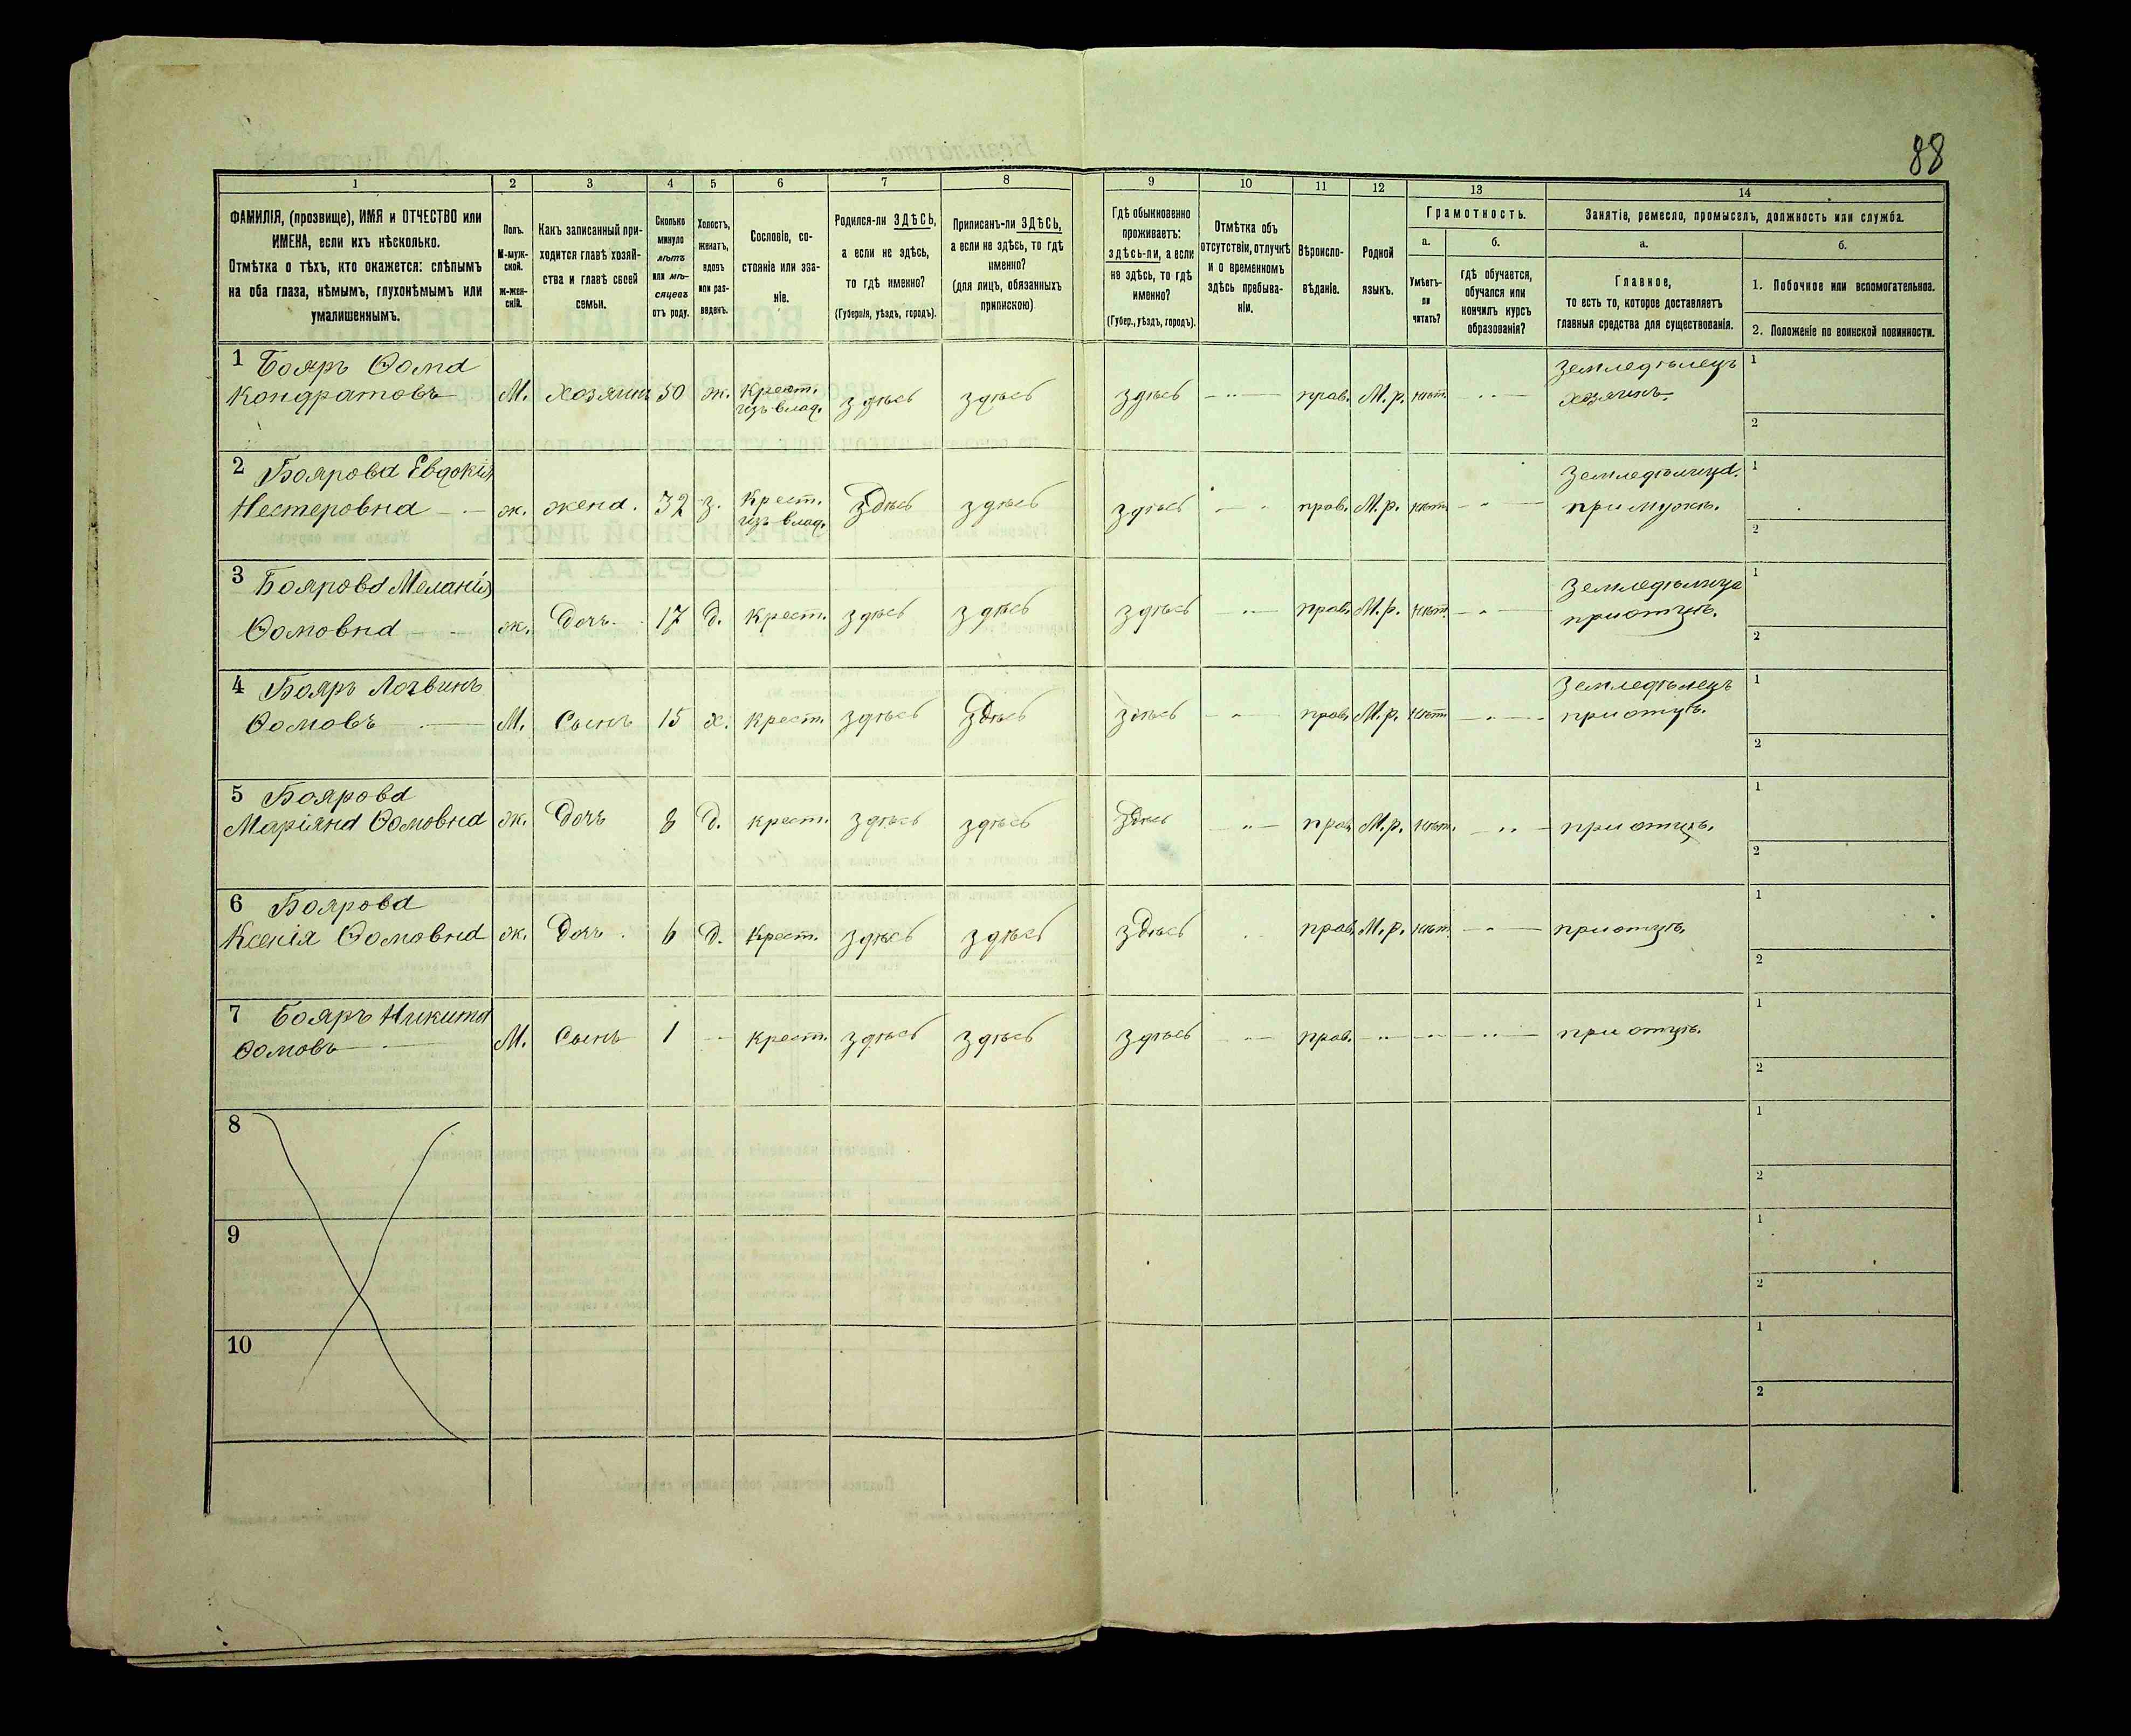 88
1 2 3 4 5 6 7 8 9 10 11 12 13 14
ФАМИЛІЯ, (прозвище), ИМЯ и ОТЧЕСТВО или
ИМЕНА, если ихъ нѣсколько.
Отмѣтка о тѣхъ, кто окажется: слѣпымъ
на оба глаза, нѣмымъ, глухонѣмымъ или
умалишеннымъ.
Полъ.
М-муж-
ской.
ж-жен-
скій.
Какъ записанный при-
ходится главѣ хозяй-
ства и главѣ своей
семьи.
Сколько
минуло
лѣтъ
или мѣ-
сяцевъ
отъ роду.
Холостъ,
женатъ,
вдовъ
или раз-
веденъ.
Сословіе, со-
стояніе или зва-
ніе.
Родился-ли ЗДѢСЬ,
а если не здѣсь,
то гдѣ именно?
(Губернія, уѣздъ, городъ).
Приписанъ-ли ЗДѢСЬ,
а если не здѣсь, то гдѣ
именно?
(для лицъ, обязанныхъ
припискою)
Гдѣ обыкновенно
проживаетъ:
здѣсь-ли, а если
не здѣсь, то гдѣ
именно?
(Губер., уѣздъ, городъ).
Отмѣтка объ
отсутствіи, отлучкѣ
и о временномъ
здѣсь пребыва-
ніи.
Вѣроиспо-
вѣданіе.
Родной
языкъ.
Грамотность.
а. б.
Умѣетъ-
ли
читать?
гдѣ обучается,
обучался или
кончилъ курсъ
образованія?
Занятіе, ремесло, промыселъ, должность или служба.
а. б.
Главное,
то есть то, которое доставляетъ
главныя средства для существованія.
1. Побочное или вспомогательное.
2. Положеніе по воинской повинности.
1 Бояръ Ѳома Землѳделецъ 1
Кондратовъ М. хозяинъ 50 ж. Крест. здѣсь здѣсь здѣсь — " — прав. М.р. нѣт. хозяинъ.
изъ влад. 2
2 Боярова Евдокія Земледѣлица. 1
Нестеровна ж. жена. 32 з. Крест. Здѣсь здѣсь здѣсь прав. М.р. нѣт. при мужѣ.
изъ влад. 2
3 Боярова Меланія Земледѣлица 1
Ѳомовна ж. Дочь 17 д. Крест. здѣсь здѣсь здѣсь прав. М.р. нѣт. при отцѣ. 2
4 Бояръ Логвинъ Земледѣлецъ 1
Ѳомовъ М. Сынъ 15 х. Крест. здѣсь Здѣсь здѣсь прав. М.р. нѣт при отцѣ. 2
5 Боярова 1
Маріяна Ѳомовна ж. Дочь 8 д. крест. здѣсь здѣсь Здѣсь прав. М.р. нѣт. при отцѣ. 2
6 Боярова 1
Ксенія Ѳомовна ж. Дочь 6 д. Крест. здѣсь здѣсь здѣсь прав. М.р. нѣт. при отцѣ. 2
7 Бояръ Никита 1
Ѳомовъ М. Сынъ 1 крест. здѣсь здѣсь здѣсь прав. при отцѣ. 2
8 1
2
9 1
2
10 1
2